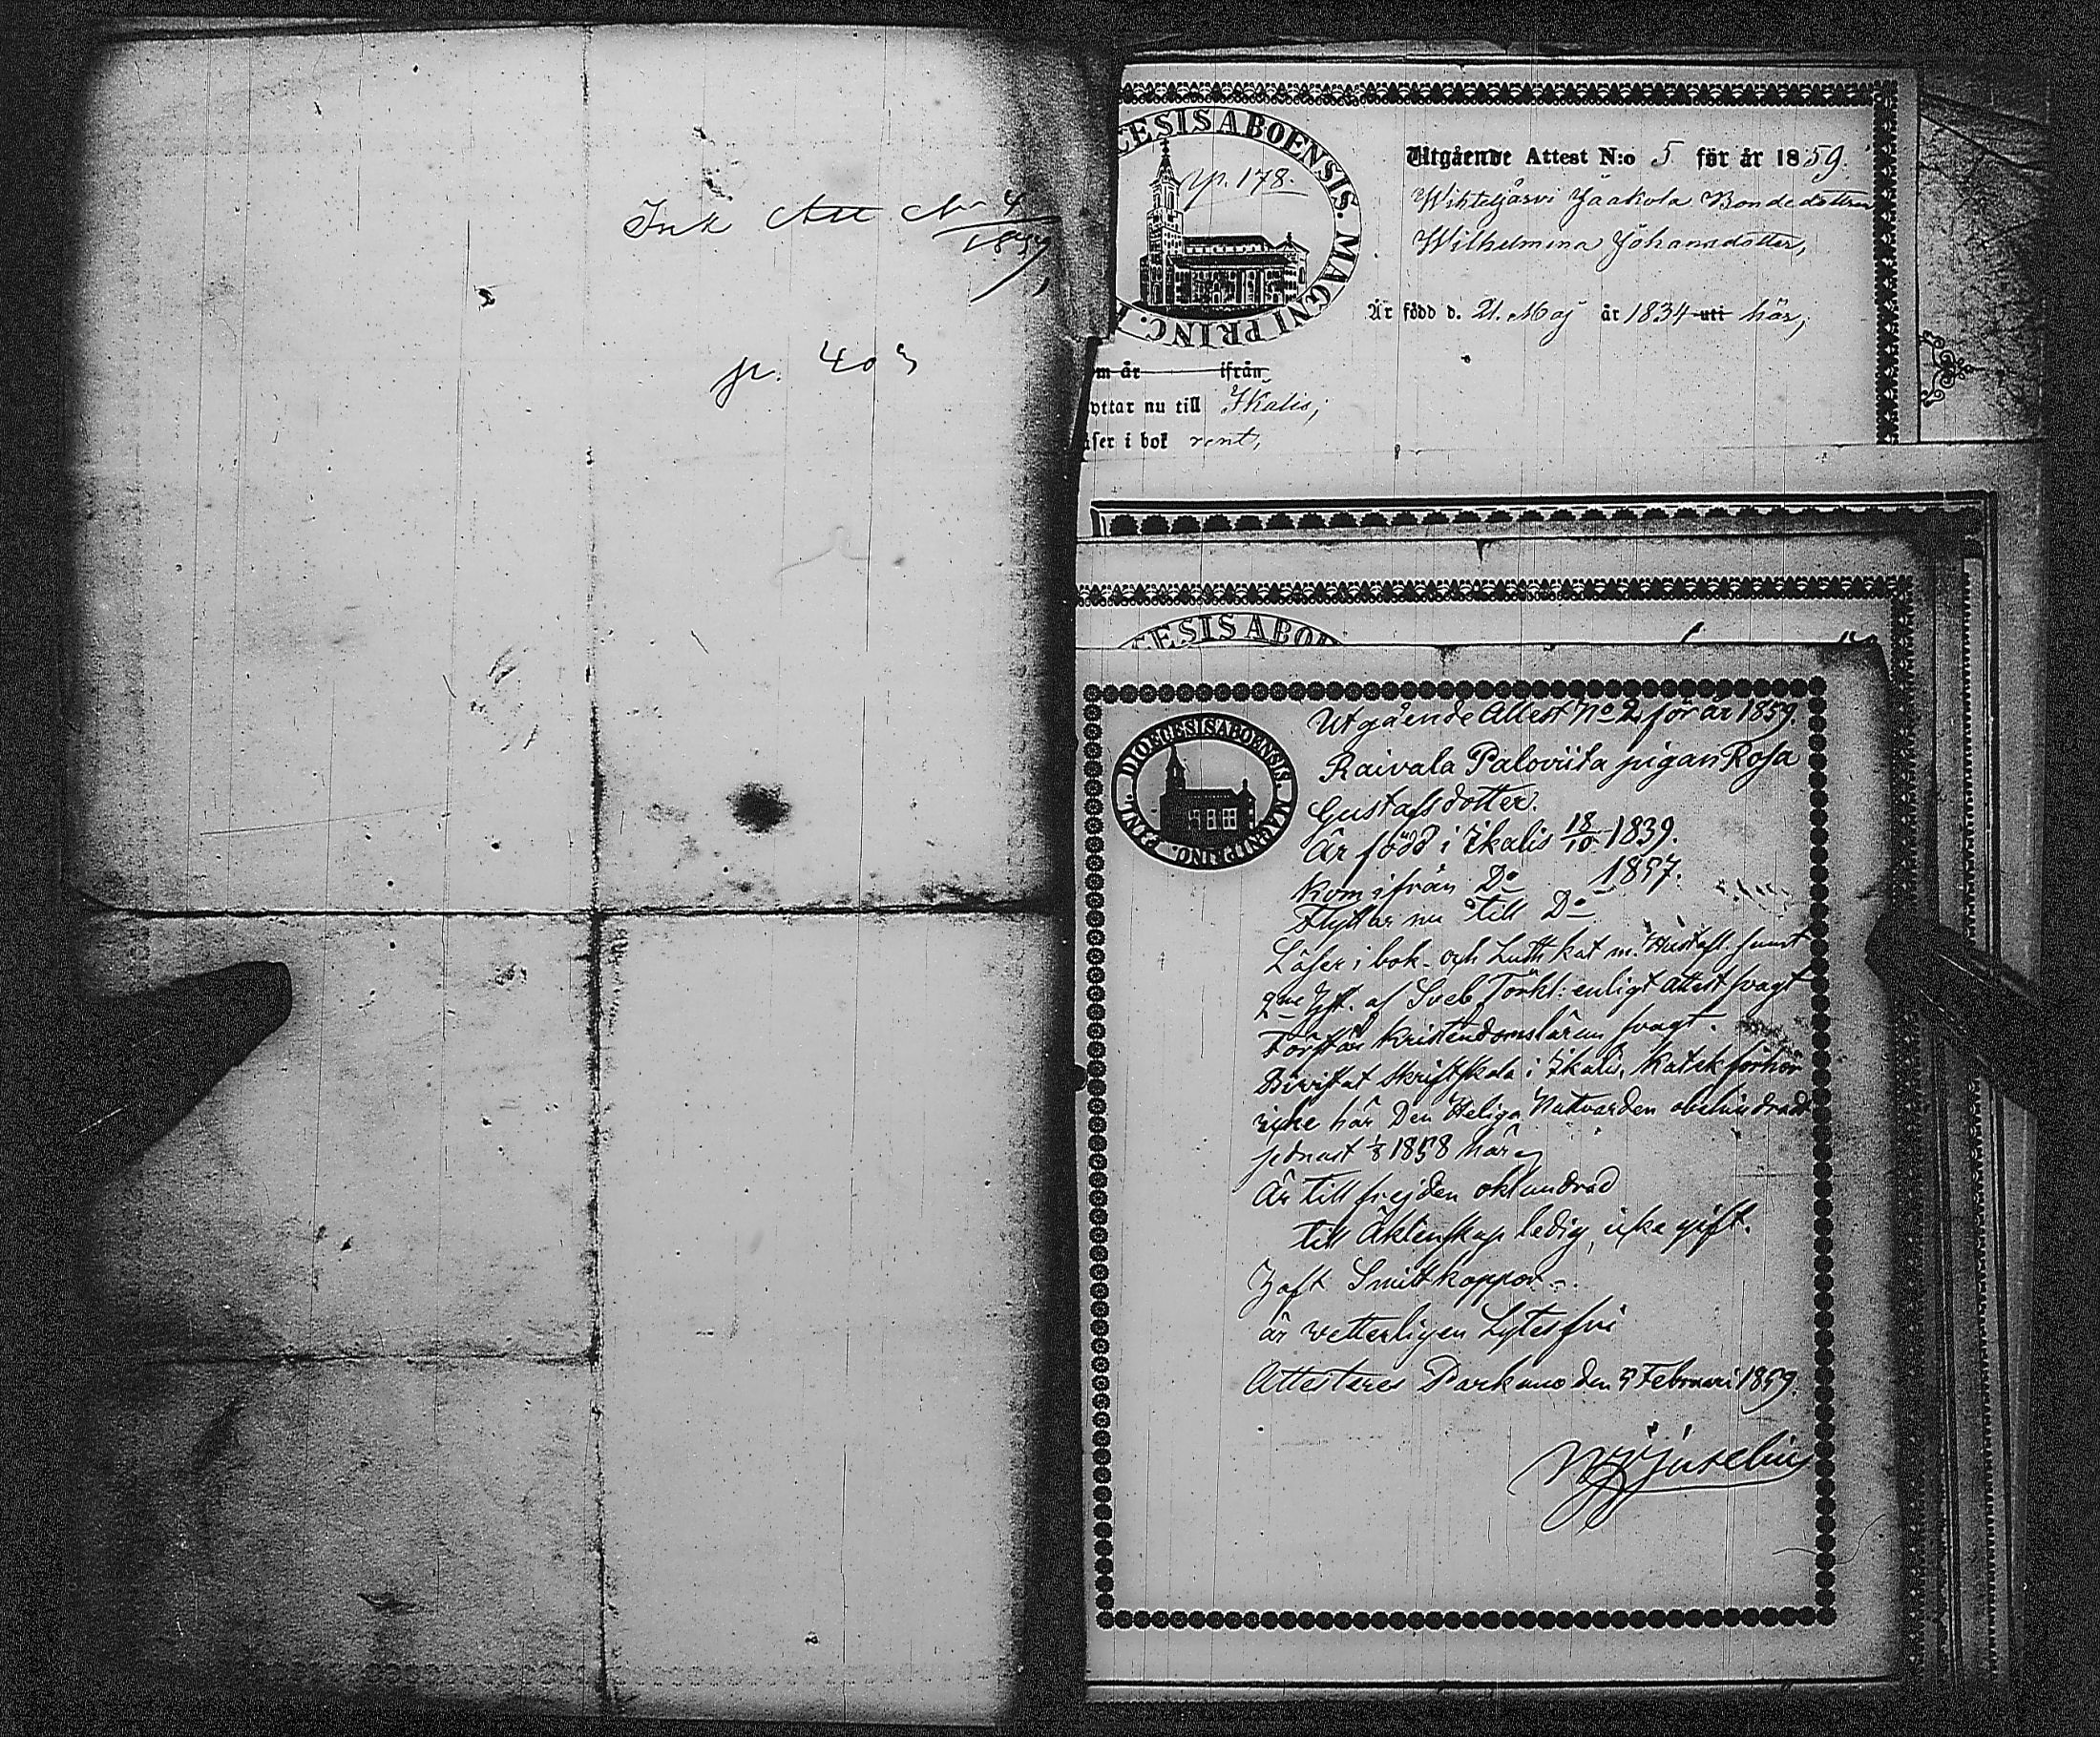 Ink Att No 4
1859
p. 403
DIOECESIS ABOENSIS. MAGNI PRINC.
p. 178.
Utgående Attest N:o 5 för år 1859.
Wihteljärvi Jaakola Bondedottren
Wilhelmina Johansdotter,
Är född d. 21. Maj år 1834 uti här,
om år ifrån
yttar nu till Ikalis,
äser i bok rent,
CESIS ABOE
DIOECESIS ABOENSIS. MAGNI PRINC. FINL.
Utgående Attest No 2 för år 1859.
Raivala Paloviita pigan Rosa
Gustafsdotter.
Är född i Ikalis 18/10 1839.
Kom ifrån Do 1857.
Flyttar nu till Do
Läser i bok och Luth kat m. Hustafl. samt
2ne Hft. af Sveb. Förkl: enligt attest svagt
Förstår kristendomsläran svagt.
Bivistat skriftskola i Ikalis, Katek förhör
icke här Den Heliga Nattvarden obehindrad
sednast 1/8 1858 här
Är till frejden oklandrad
till Äktenskap ledig, icke gift.
Haft Smittkoppor
är vetterligen Lytesfri
Attesteras Parkano den 9 Februari 1859.
Juselius